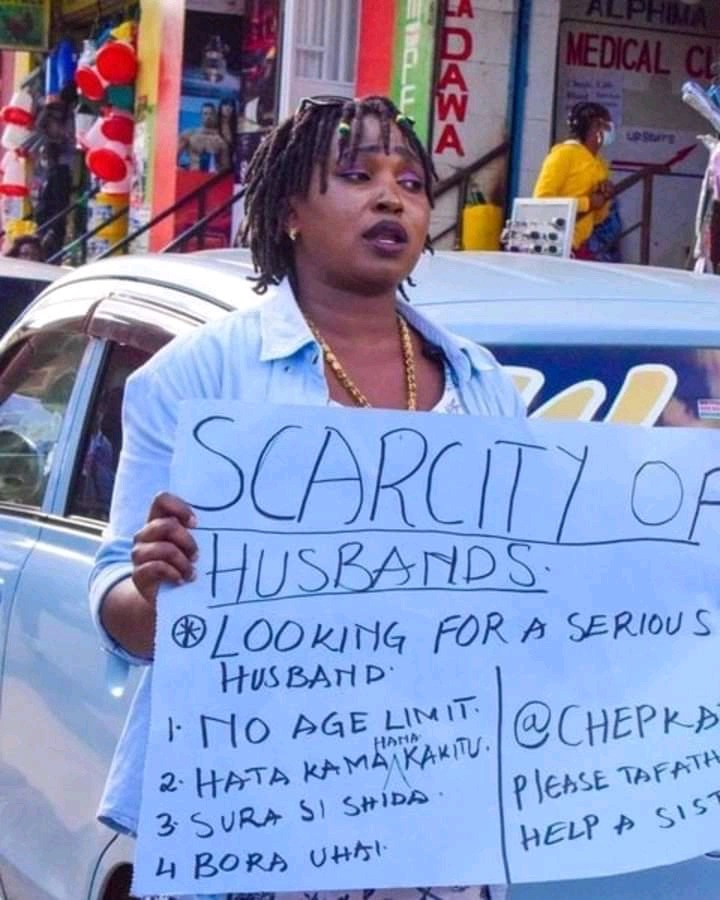 ALPHIMA
MEDICAL CL
UPSTAIRS
DAWA
SCARCITY OF
HUSBANDS.
* LOOKING FOR A SERIOUS
HUSBAND.
1. NO AGE LIMIT.
2. HATA KAMA HANA KAKITU.
3. SURA SI SHIDA.
4 BORA UHAI.
@CHEPKA
PLEASE TAFATH
HELP A SIST